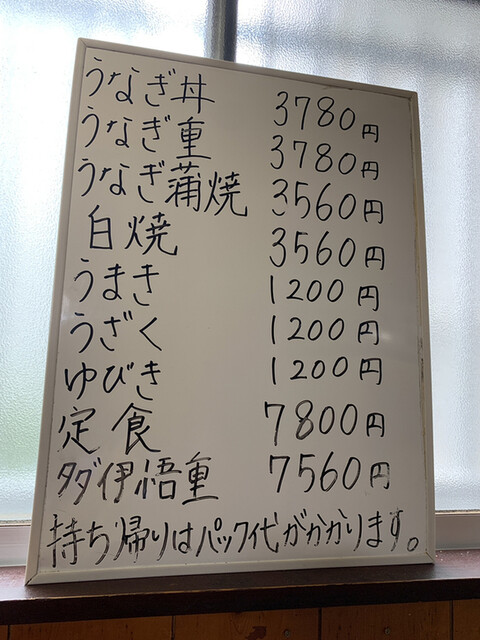 うなぎ丼 3780円
うなぎ重 3780円
うなぎ蒲焼 3560円
白焼 3560円
うまき 1200円
うざく 1200円
ゆびき 1200円
定食 7800円
タダ伊悟重 7560円
持ち帰りはパック代がかかります。